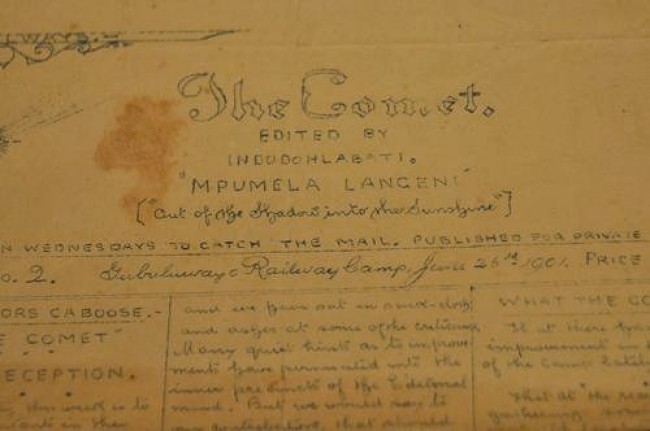 The Comet.
EDITED BY
INDUDOHLABATI.
"MPUMELA LANGENI"
["Out of the Shadow into the Sunshine"]
N WEDNESDAYS TO CATCH THE MAIL. PUBLISHED FOR PRIVATE
o. 2. Railway Camp, June 26th 1901. PRICE
ORS CABOOSE.-
E COMET"
ECEPTION.
this week is to
in the
and we pass out in
and ashes at some of the
Many quiet hints as to improve-
ments have permeated into the
inner precincts of the Editorial
mind. But we would say to
our that should
WHAT THE CO
If at there
improvement in
of the Camp
That at the
gathering